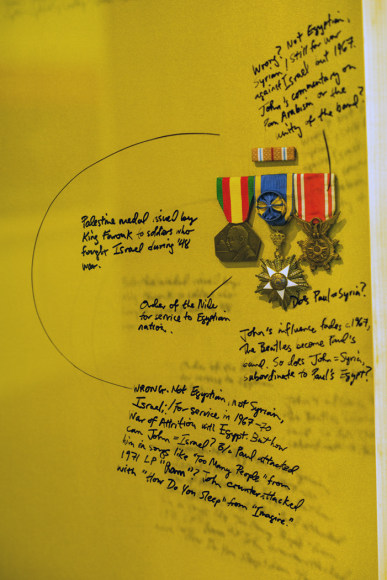 Wrong? Not Egyptian,
Syrian, / still for war
against Israel but 1967.
John's commentary on
Pan Arabism or the
unity of the band?
Palestine medal issued by
King Farouk to soldiers who
fought Israel during '48
war.
Order of the Nile
for service to Egyptian
nation.
Does Paul=Syria?
John's influence fades ~1967,
the Beatles become Paul's
band. So does John=Syria,
subordinate to Paul's Egypt?
WRONG. Not Egyptian, not Syrian,
Israeli, / for service in 1967-70
War of Attrition with Egypt. But how
can John = Israel? B/c Paul attacked
him in songs like "Too Many People" from
1971 LP "Ram"? John counterattacked
with "How Do You Sleep" from "Imagine."